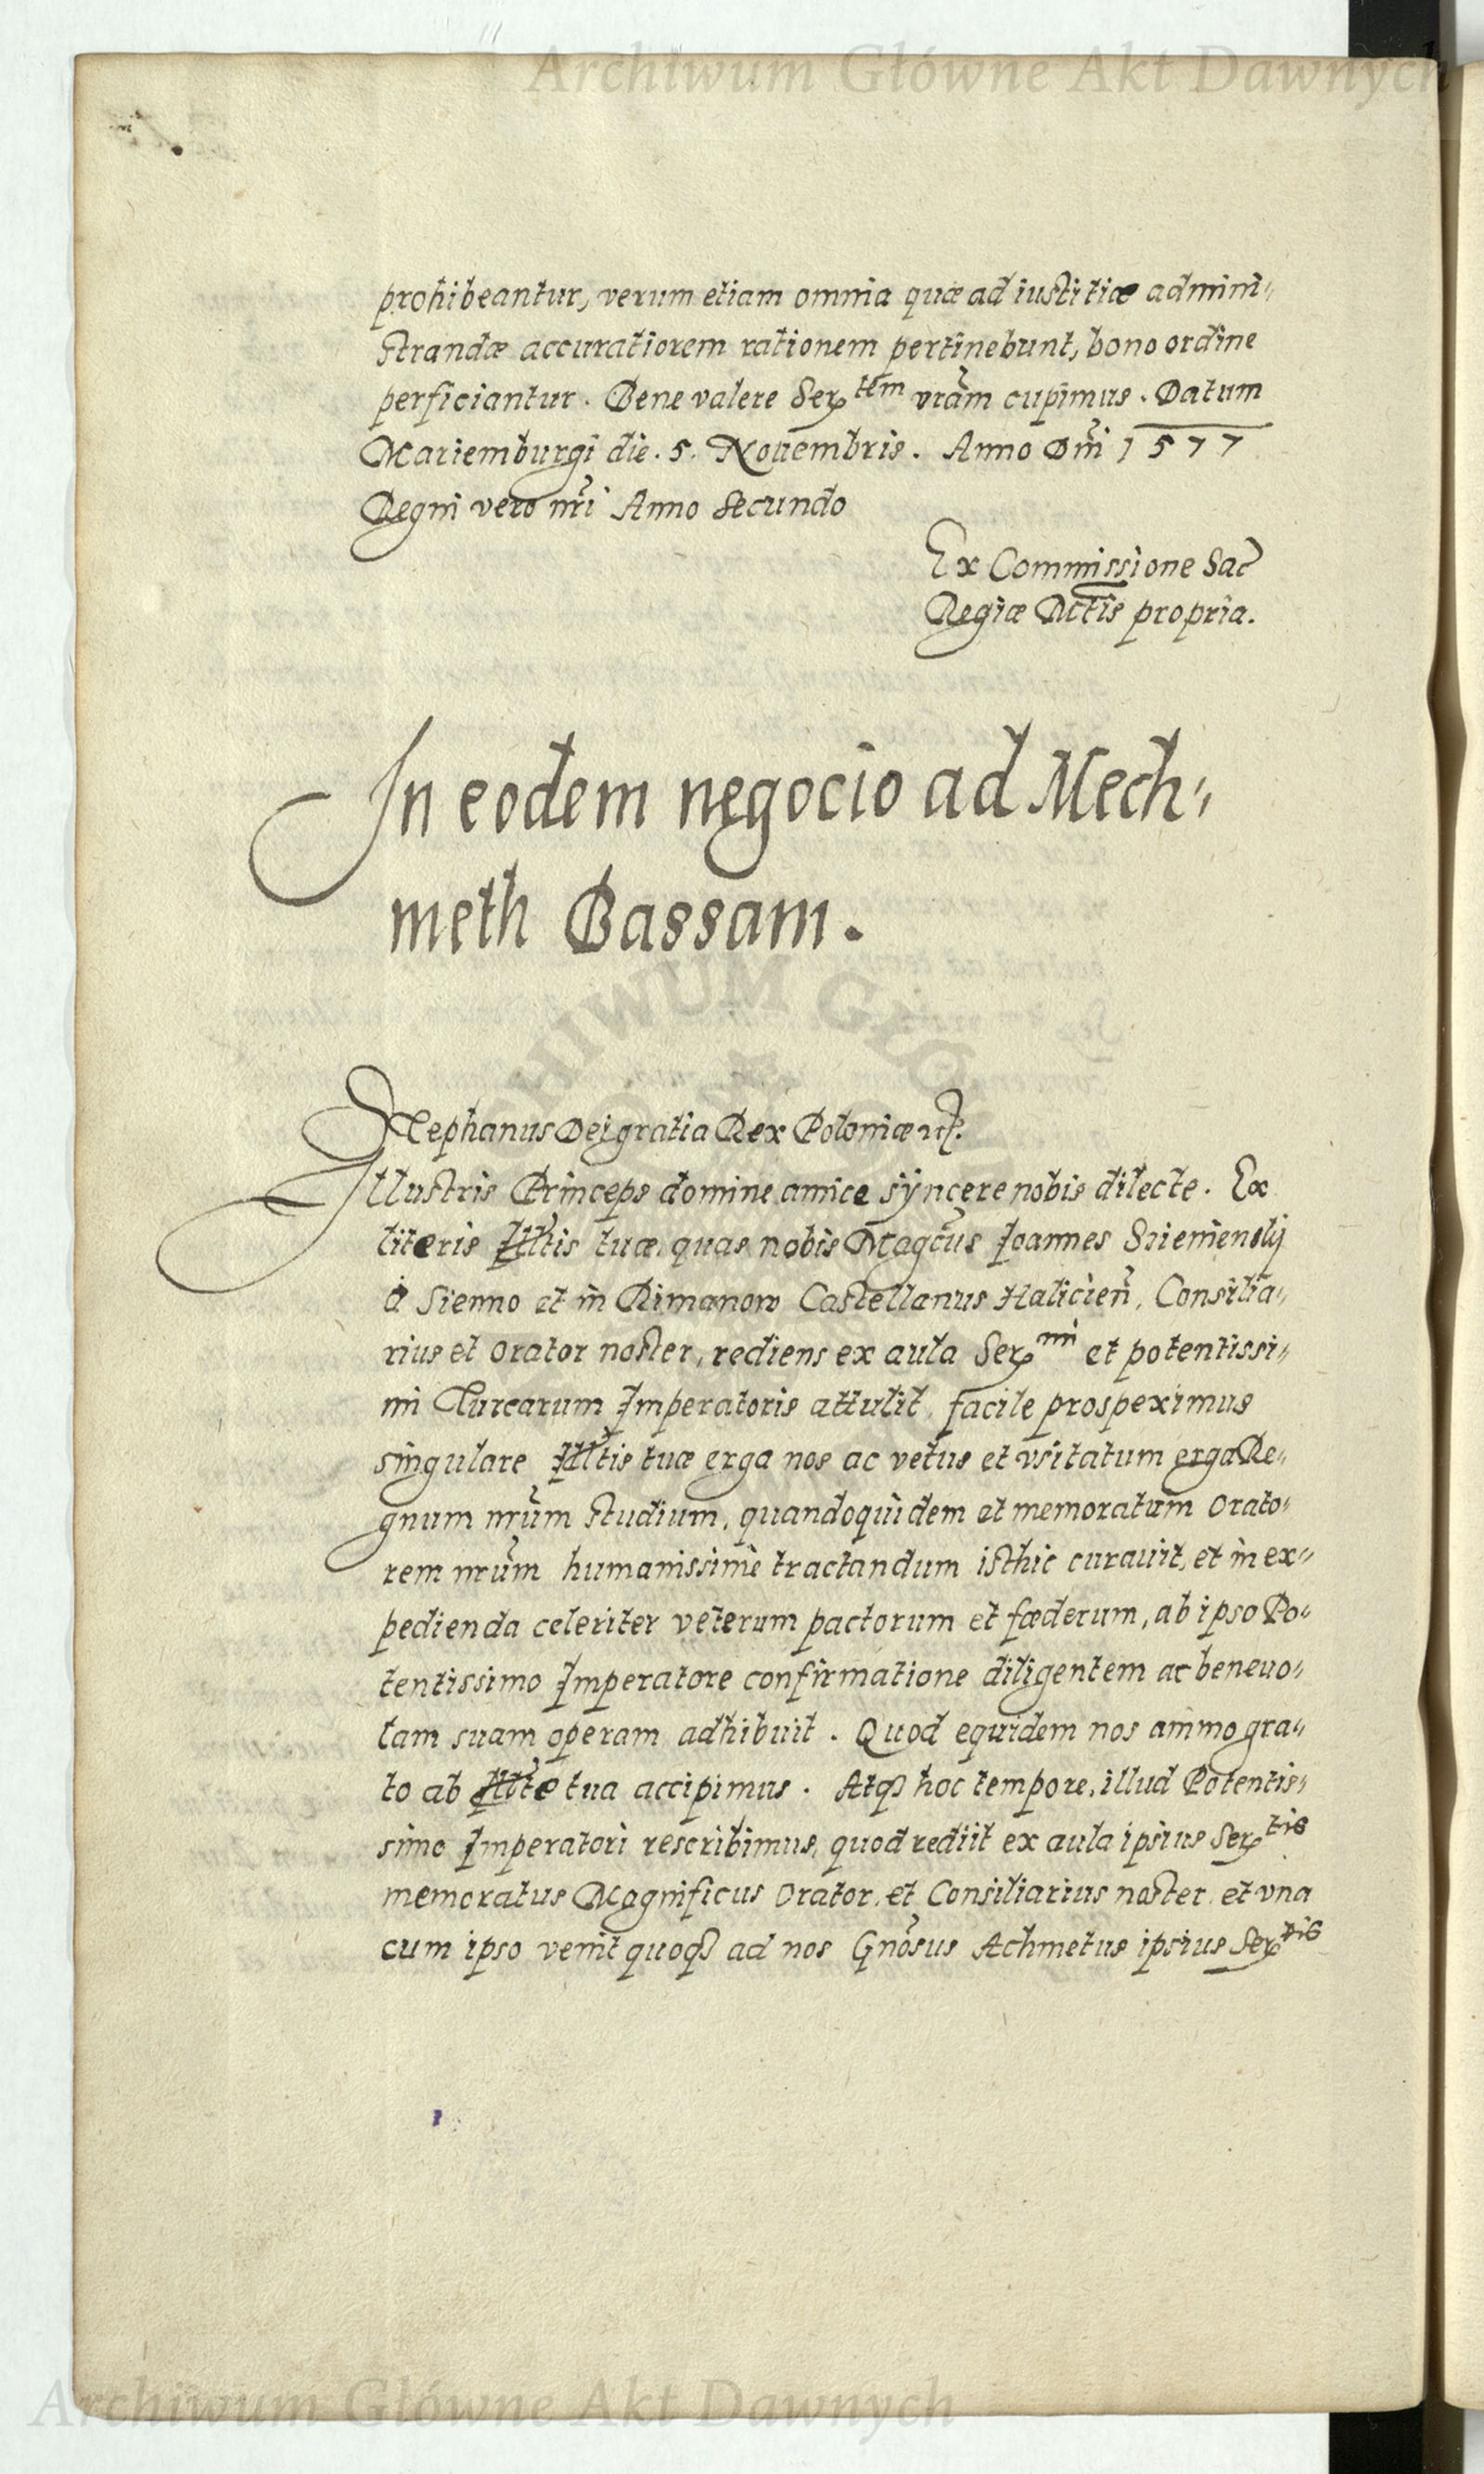 Archiwum Główne Akt Dawnych
prohibeantur, verum etiam omnia quæ ad iustitiæ admini〃
strandæ accuratiorem rationem pertinebunt, bono ordine
perficiantur. Bene valere Ser^tem vram cupimus. Datum
Mariemburgi die. 5. Nouembris. Anno Dni 1577
Regni vero nri Anno Secundo
Ex Commissione Sac
Regiæ Mtis propria.
In eodem negocio ad Mech〃
meth Bassam.
Stephanus Dei gratia Rex Poloniæ etc.
Illustris Princeps domine amice syncere nobis dilecte. Ex
literis Illtis tuæ, quas nobis Magcus Ioannes Sriemenskij
à Sienno et in Rimanow Castellanus Halicien, Consilia〃
rius et Orator noster, rediens ex aula Ser^mi et potentissi〃
mi Turcarum Imperatoris attulit, facile prospeximus
singulare Illtis tuæ erga nos ac vetus et vsitatum erga Re〃
gnum nrum studium, quandoquidem et memoratum Orato〃
rem nrum humanissime tractandum isthic curauit, et in ex〃
pedienda celeriter veterum pactorum et fœderum, ab ipso Po〃
tentissimo Imperatore confirmatione diligentem ac beneuo〃
lam suam operam adhibuit. Quod equidem nos animo gra〃
to ab Illte tua accipimus. Atq3 hoc tempore, illud Potentis〃
simo Imperatori rescribimus, quod rediit ex aula ipsius Ser^tis
memoratus Magnificus Orator, et Consiliarius noster, et vna
cum ipso venit quoq3 ad nos Gnosus Achmetus ipsius Ser^tis
Archiwum Główne Akt Dawnych